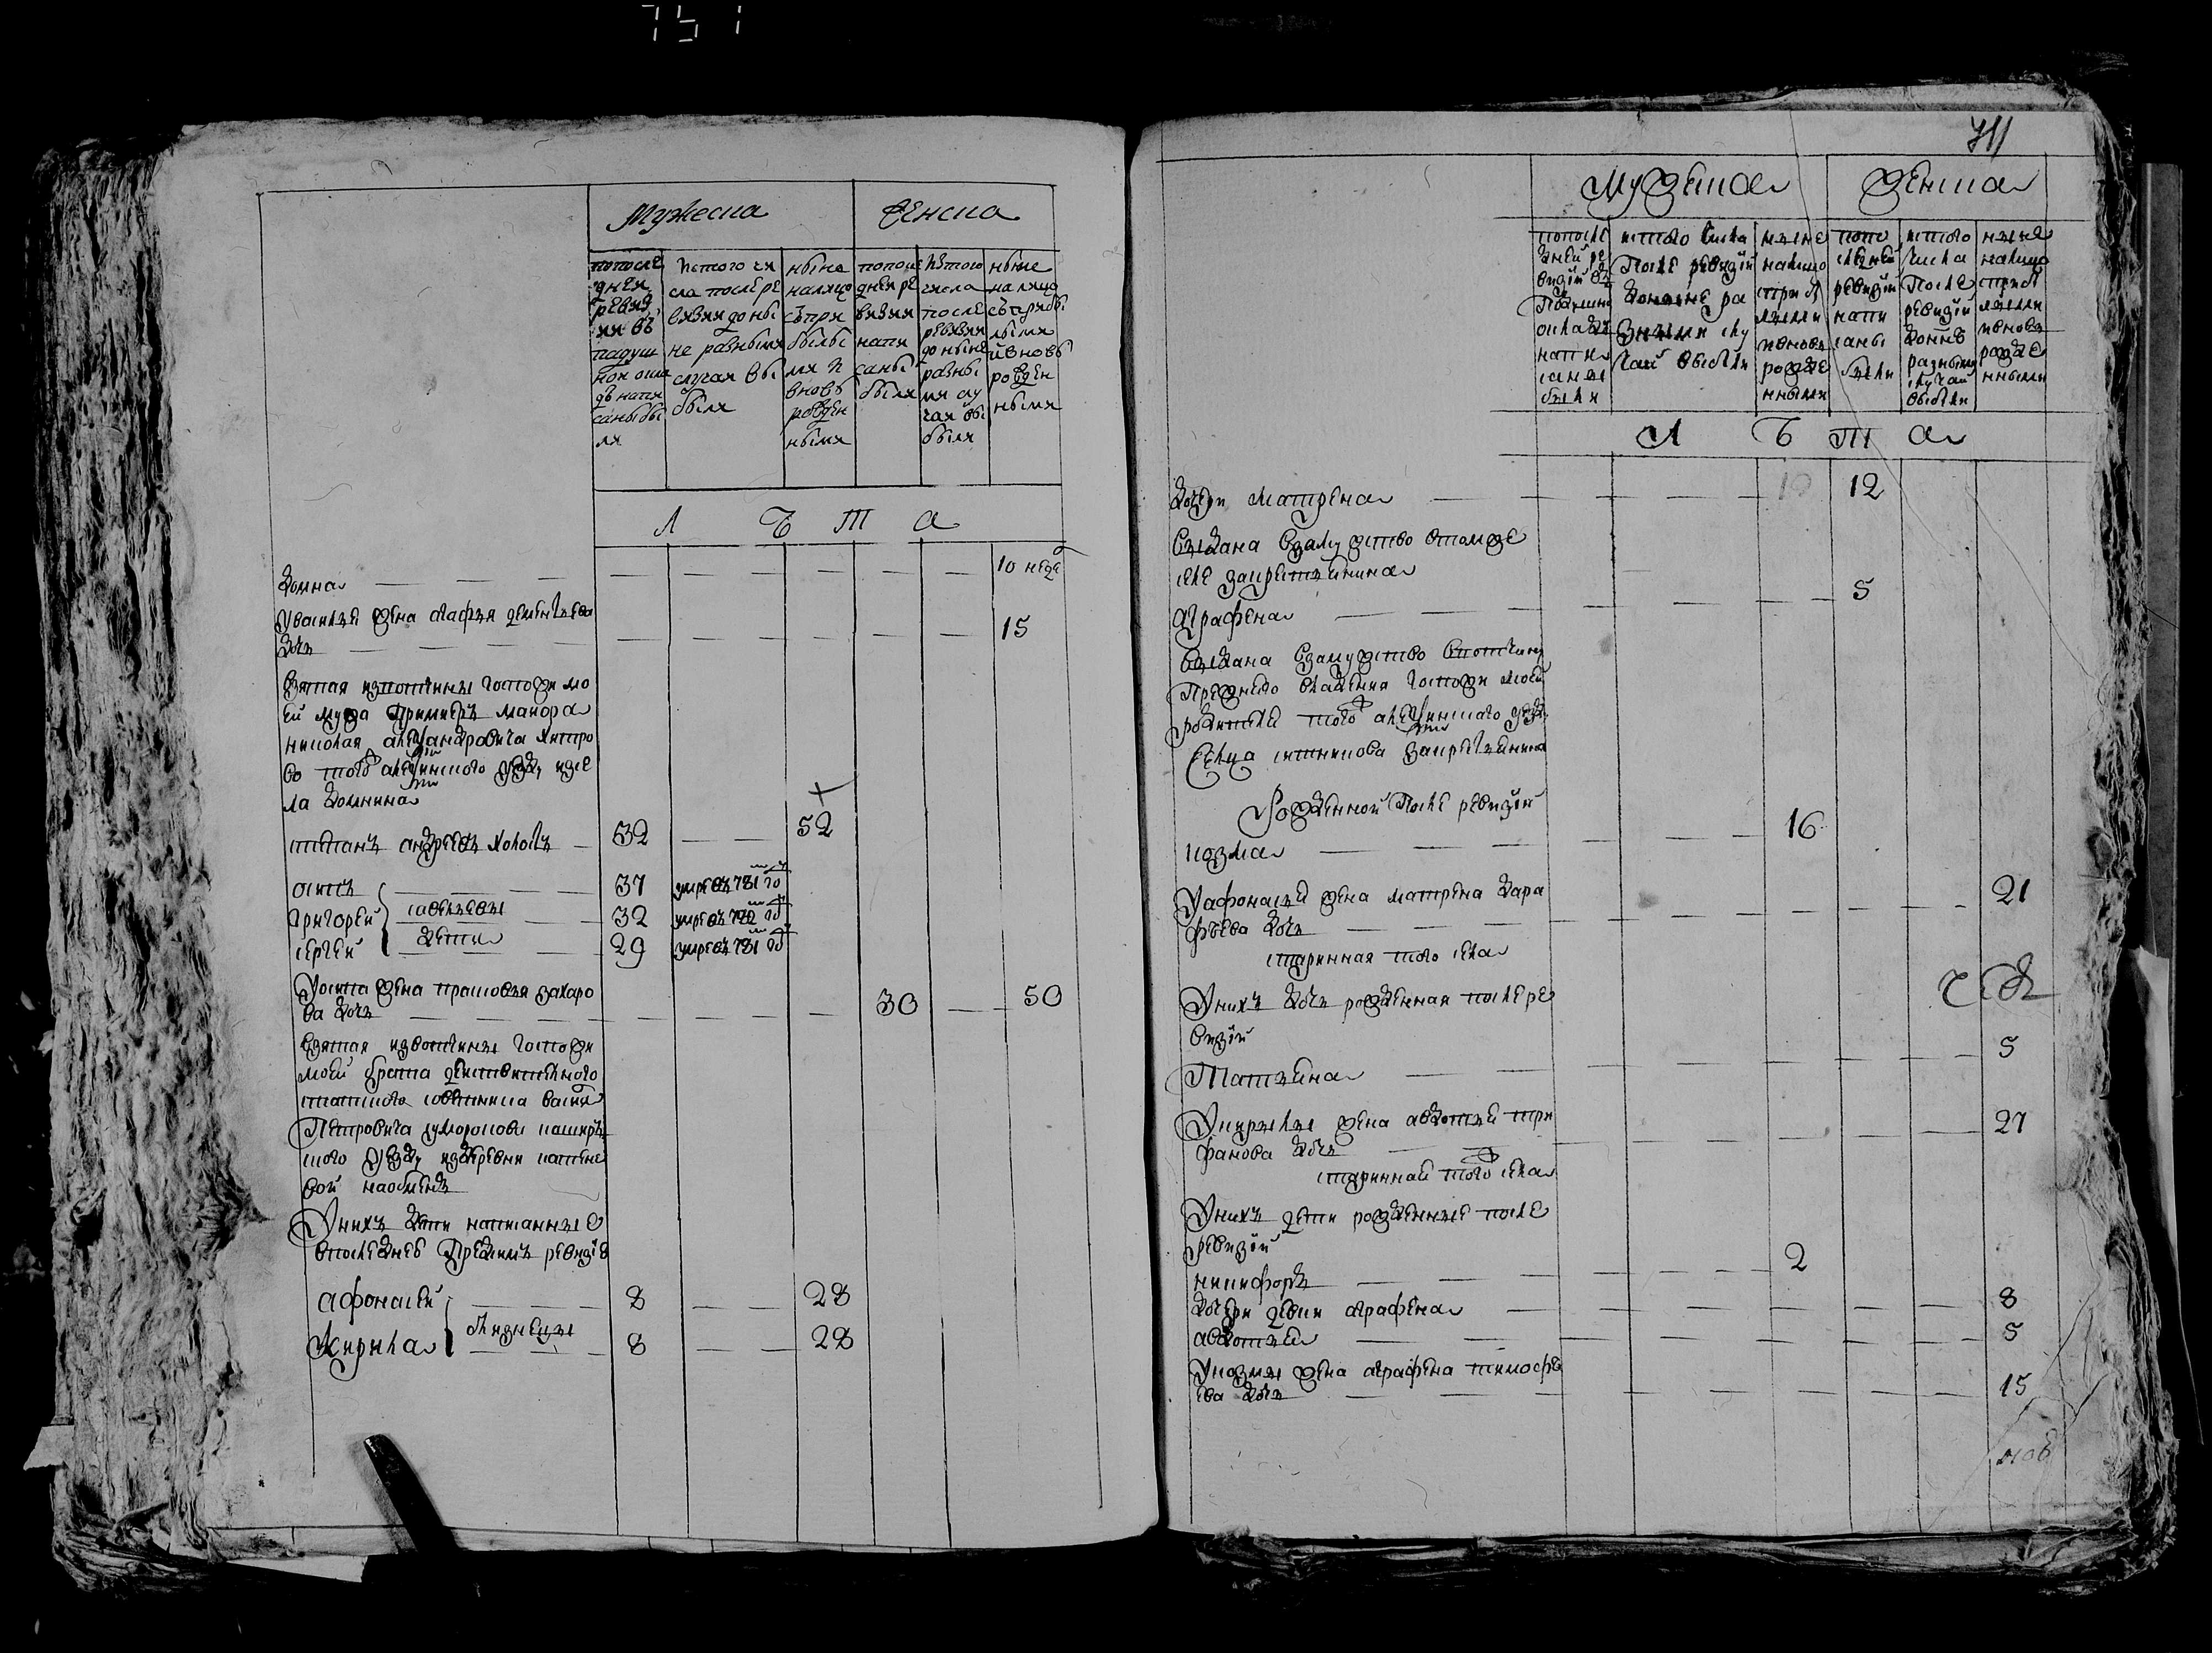 751
Мужеска
женска
попосле
дней
ревиз
ии въ
подуш
ном окла
де напи
саны бы
ли
Ис того чи
сла после ре
визии до ны
не разными
случаи вы
были
ныне
налицо
съ при
былы
ми и
вновь
рожден
ными
попосле
дней ре
визии
напи
саны
были
Ис того
числа
после
ревизии
до ныне
разны
ми слу
чаи вы
были
ныне
налицо
съ прибы
лыми
и вновь
рожден
ными
Л Ѣ Т а
домна — — — 10 неде
У василья жена агафья дементьева
дочь — — — 15
взятая из вотчины госпожи мо
ей мужа премиеръ маиора
николая александровича хитро
во того алексинского уезду из се
ла домнина
степанъ андреевъ холостъ — 52 52
осипъ — 37 умре въ 781 году
григорей савельевы — 32 умре въ 772 году
сергей дети — 29 умре въ 781 году
У осипа жена прасковья захаро
ва дочь — 30 — 50
взятая из вотчины госпожи
моей брата действительного
статского советника василья
Петровича каширъ
ского уезду из деревни
вой наобменъ
У нихъ дети написанные
в последнеѣ пред симъ ревизіи
афонасей — 8 — 28
Кирила близнецы — 8 — 28
711
Мужеска
женска
попосле
дней ре
визіи въ
подушно
окладѣ
напи
саны
были
ис того числа
После ревизіи
доныне ра
зными слу
чаи выбыли
ныне
налицо
с приб
лыми
и вновь
рожде
нными
попо
следней
ревизіи
напи
саны
были
ис того
числа
После
ревизіи
доныне
разными
случаи
выбыли
ныне
налицо
с приб
лыми
и вновь
рожде
нными
Л Ѣ Т а
дочери матрена — 12
выдана взамужство в томже
селе за крестьянина
Аграфена — 5
выдана взамужство в вотчину
Прежнего владения госпожи моей
родителей того алексинского уезду
сельца за крестьянина
Рожденной после ревизіи
козма — 16
У афонасья жена матрена дара
фѣева дочь — 21
старинная того села
У нихъ дочь рожденная после ре
визіи
Татьяна — 5
У кирилы жена авдотья три
фанова дочь — 27
стариннай того села
У нихъ дети рожденные после
ревизіи
никифоръ — 2
дочери девки аграфена — 8
авдотья — 5
У козмы жена аграфена тимофѣ
ева дочь — 15